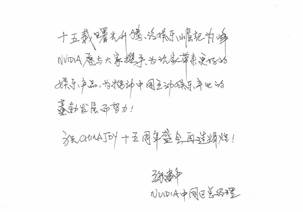 十五载曙光升腾,泛娱乐崛起为峰
NVIDIA愿与大家携手,为玩家带来更好的
娱乐产品,为推动中国互动娱乐产业的
蓬勃发展而努力!
祝CHINAJOY十五周年盛会再造辉煌!
NVIDIA中国区总经理